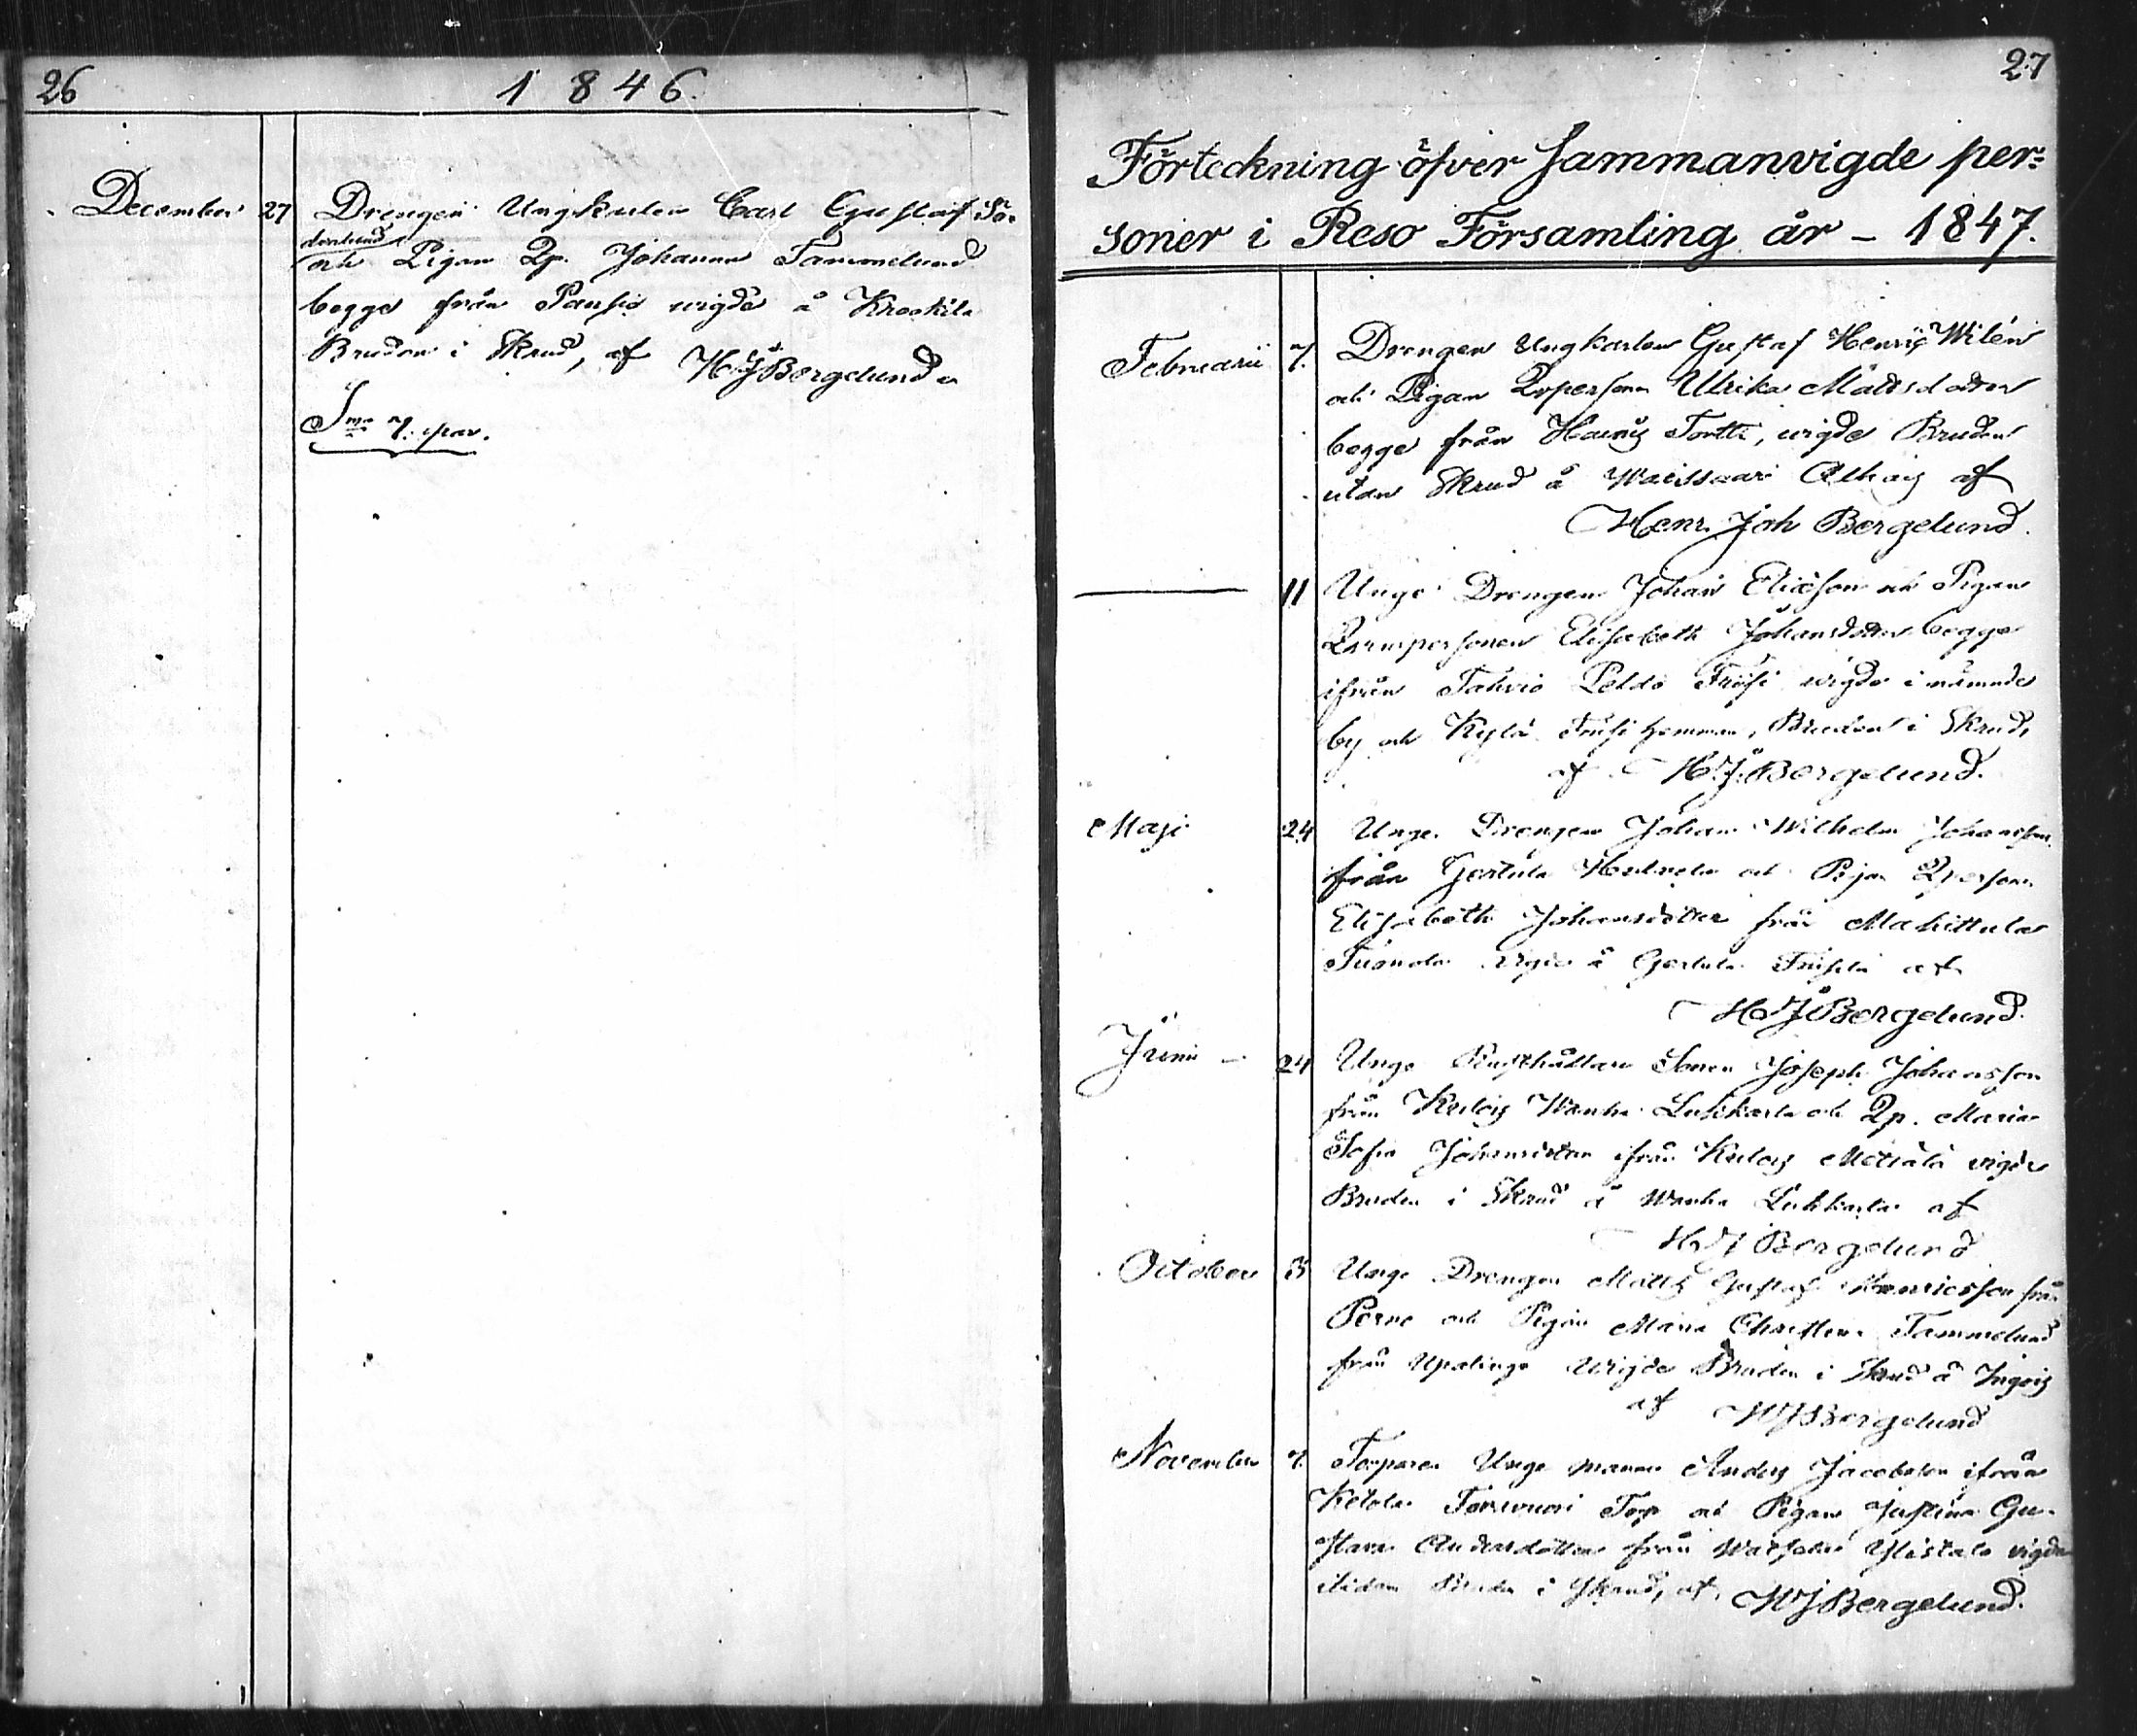 26
1846.
December 27 Drengen Ungkarlen Carl Gustaf Sö-
derlund
och Pigan Qp. Johanna Tammelund
begge från Pansio wigde å Krookila
Bruden i Skrud, af HJBergelund
Sma 7. par.
27
Förteckning öfver Sammanvigde per=
soner i Reso Församling år - 1847.
Februarii 7. Drengen Ungkarlen Gustaf Henric Wilén
och Pigan Qvpersonen Ulrika Mattsdotter
begge från Hauris Tortti, wigde Bruden
utan Skrud å af
Henr. Joh Bergelund.
— 11 Unge Drengen Johan Eliæson och Pigan
Qvinspersonen Elisabeth Johansdotter begge
ifrån Tahvio wigde i nämnde
by och Kylä hemman, Bruden i Skrud,
af H.J.Bergelund.
Maji 24 Unge Drengen Johan Wilhelm Johansson
från Gertula och Pigan Qperson
Elisabeth Johansdotter från Mahittula
wigde å Gertula af
HJBergelund.
Junii — 24 Unge Rusthållare Sonen Joseph Johansson
från Wanha Luhikarla och Qp. Maria
Sofia Johansdotter ifrån Mettälä vigde
Bruden i Skrud å Wanha af
HJ Bergelund
October 3 Unge Drengen Matts Gustaf Henricsson från
Perno och Pigan Maria Christina Tammelund
från Upalinge wigde Bruden i Skrud å Ingois
af HJBergelund
November 7. Torparen Unge mannen Anders Jacobsson ifrån
Ketola Torp och Pigan Justina Gu-
stava Andersdotter från vigde
Bruden i Skrud, af. HJBergelund.